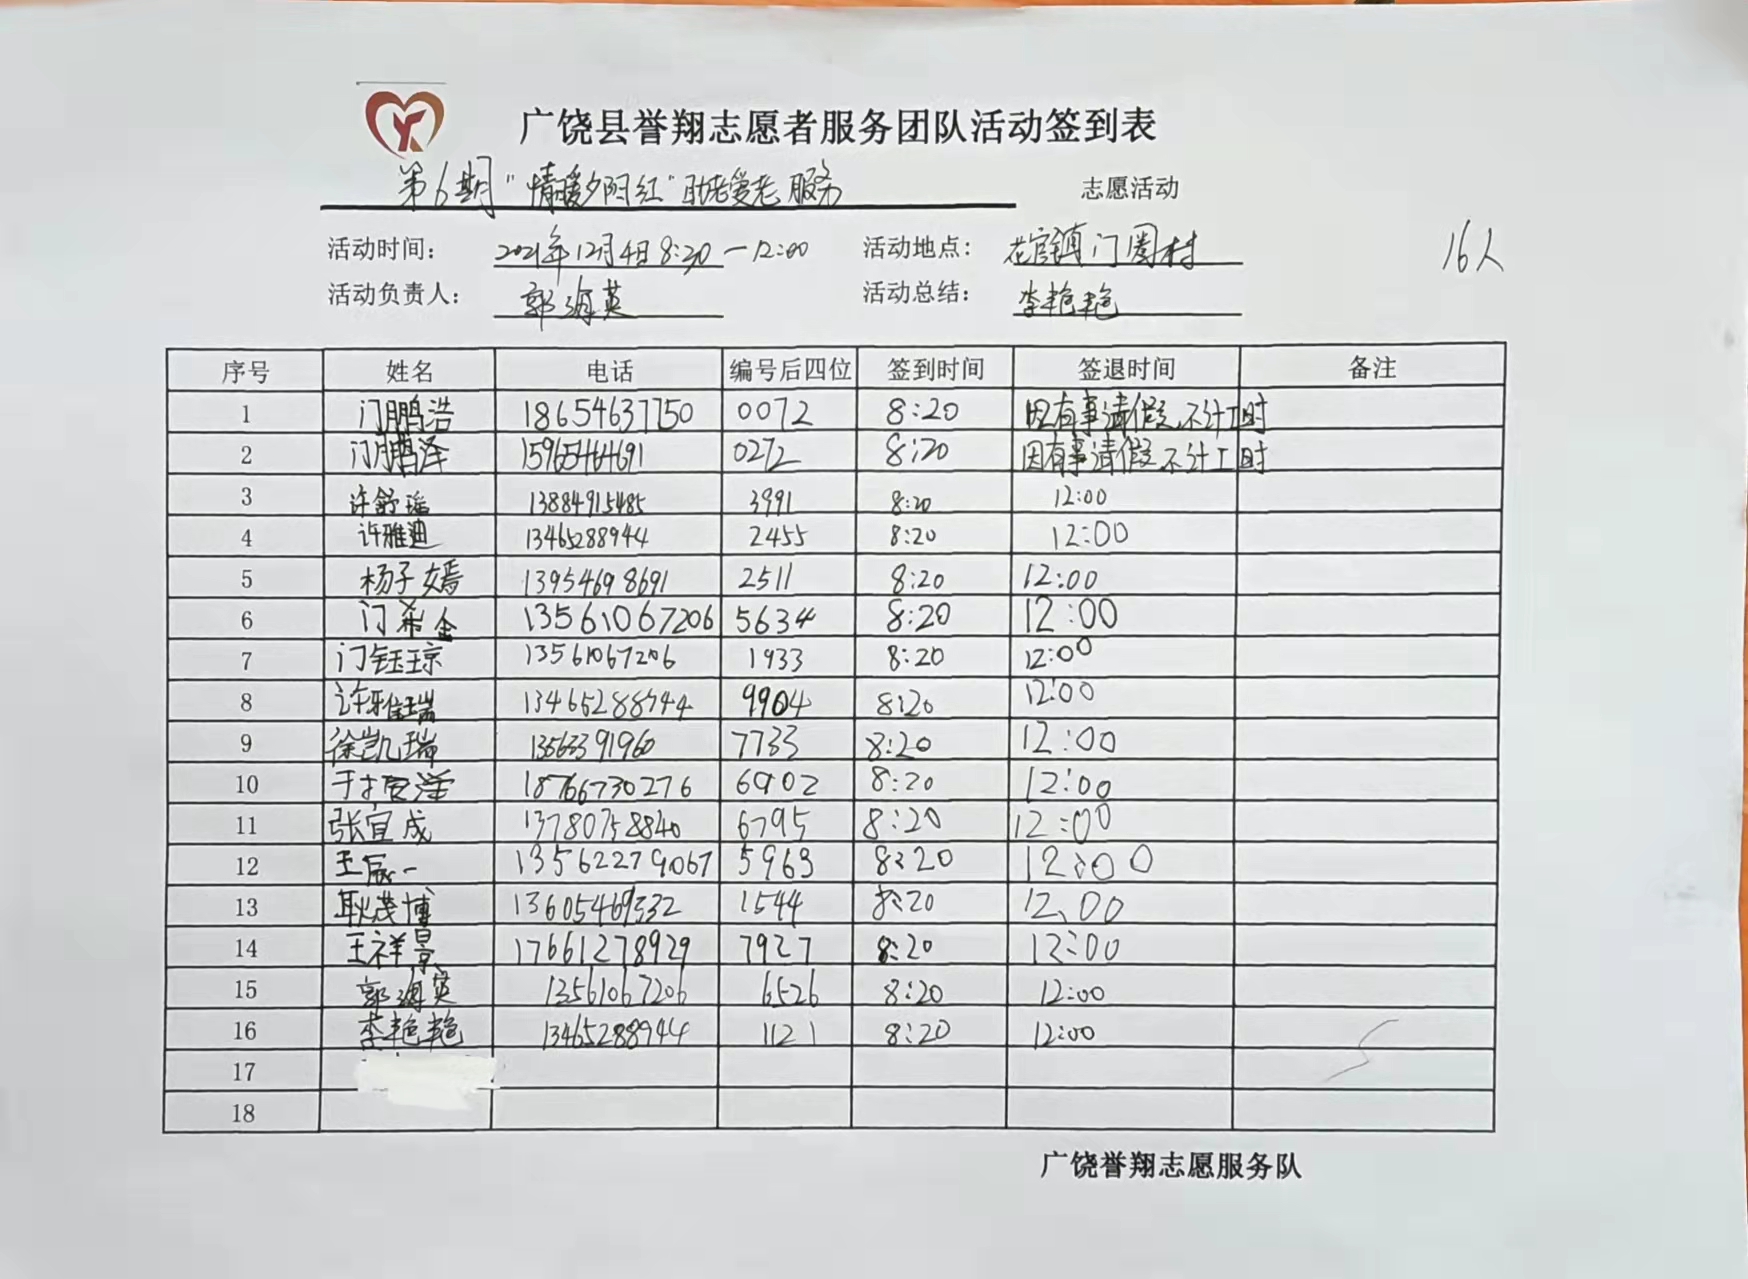 广饶县誉翔志愿者服务团队活动签到表
第6期"情暖夕阳红"助老爱老服务 志愿活动
活动时间: 2021年12月4日8:20-12:00 活动地点: 花官镇门圈村 16人
活动负责人: 郭海英 活动总结: 李艳艳
序号 姓名 电话 编号后四位 签到时间 签退时间 备注
1 门鹏浩 18654637750 0072 8:20 因有事请假,不计工时
2 门鹏泽 15965464691 0272 8:20 因有事请假,不计工时
3 许舒瑶 13884915485 3991 8:20 12:00
4 许雅迪 13465288944 2455 8:20 12:00
5 杨子嫣 13954698691 2511 8:20 12:00
6 门希金 13561067206 5634 8:20 12:00
7 门钰琼 13561067206 1933 8:20 12:00
8 许雅瑞 13465288944 9904 8:20 12:00
9 徐凯瑞 13563391960 7733 8:20 12:00
10 于 洋 18766730276 6902 8:20 12:00
11 张宜成 13780758840 6795 8:20 12:00
12 王辰一 135622279067 5963 8:20 12:00
13 耿茂博 13605469332 1544 8:20 12:00
14 王祥景 17661278929 7927 8:20 12:00
15 郭海英 13561067206 6526 8:20 12:00
16 李艳艳 13465288944 1121 8:20 12:00
17
18
广饶誉翔志愿服务队